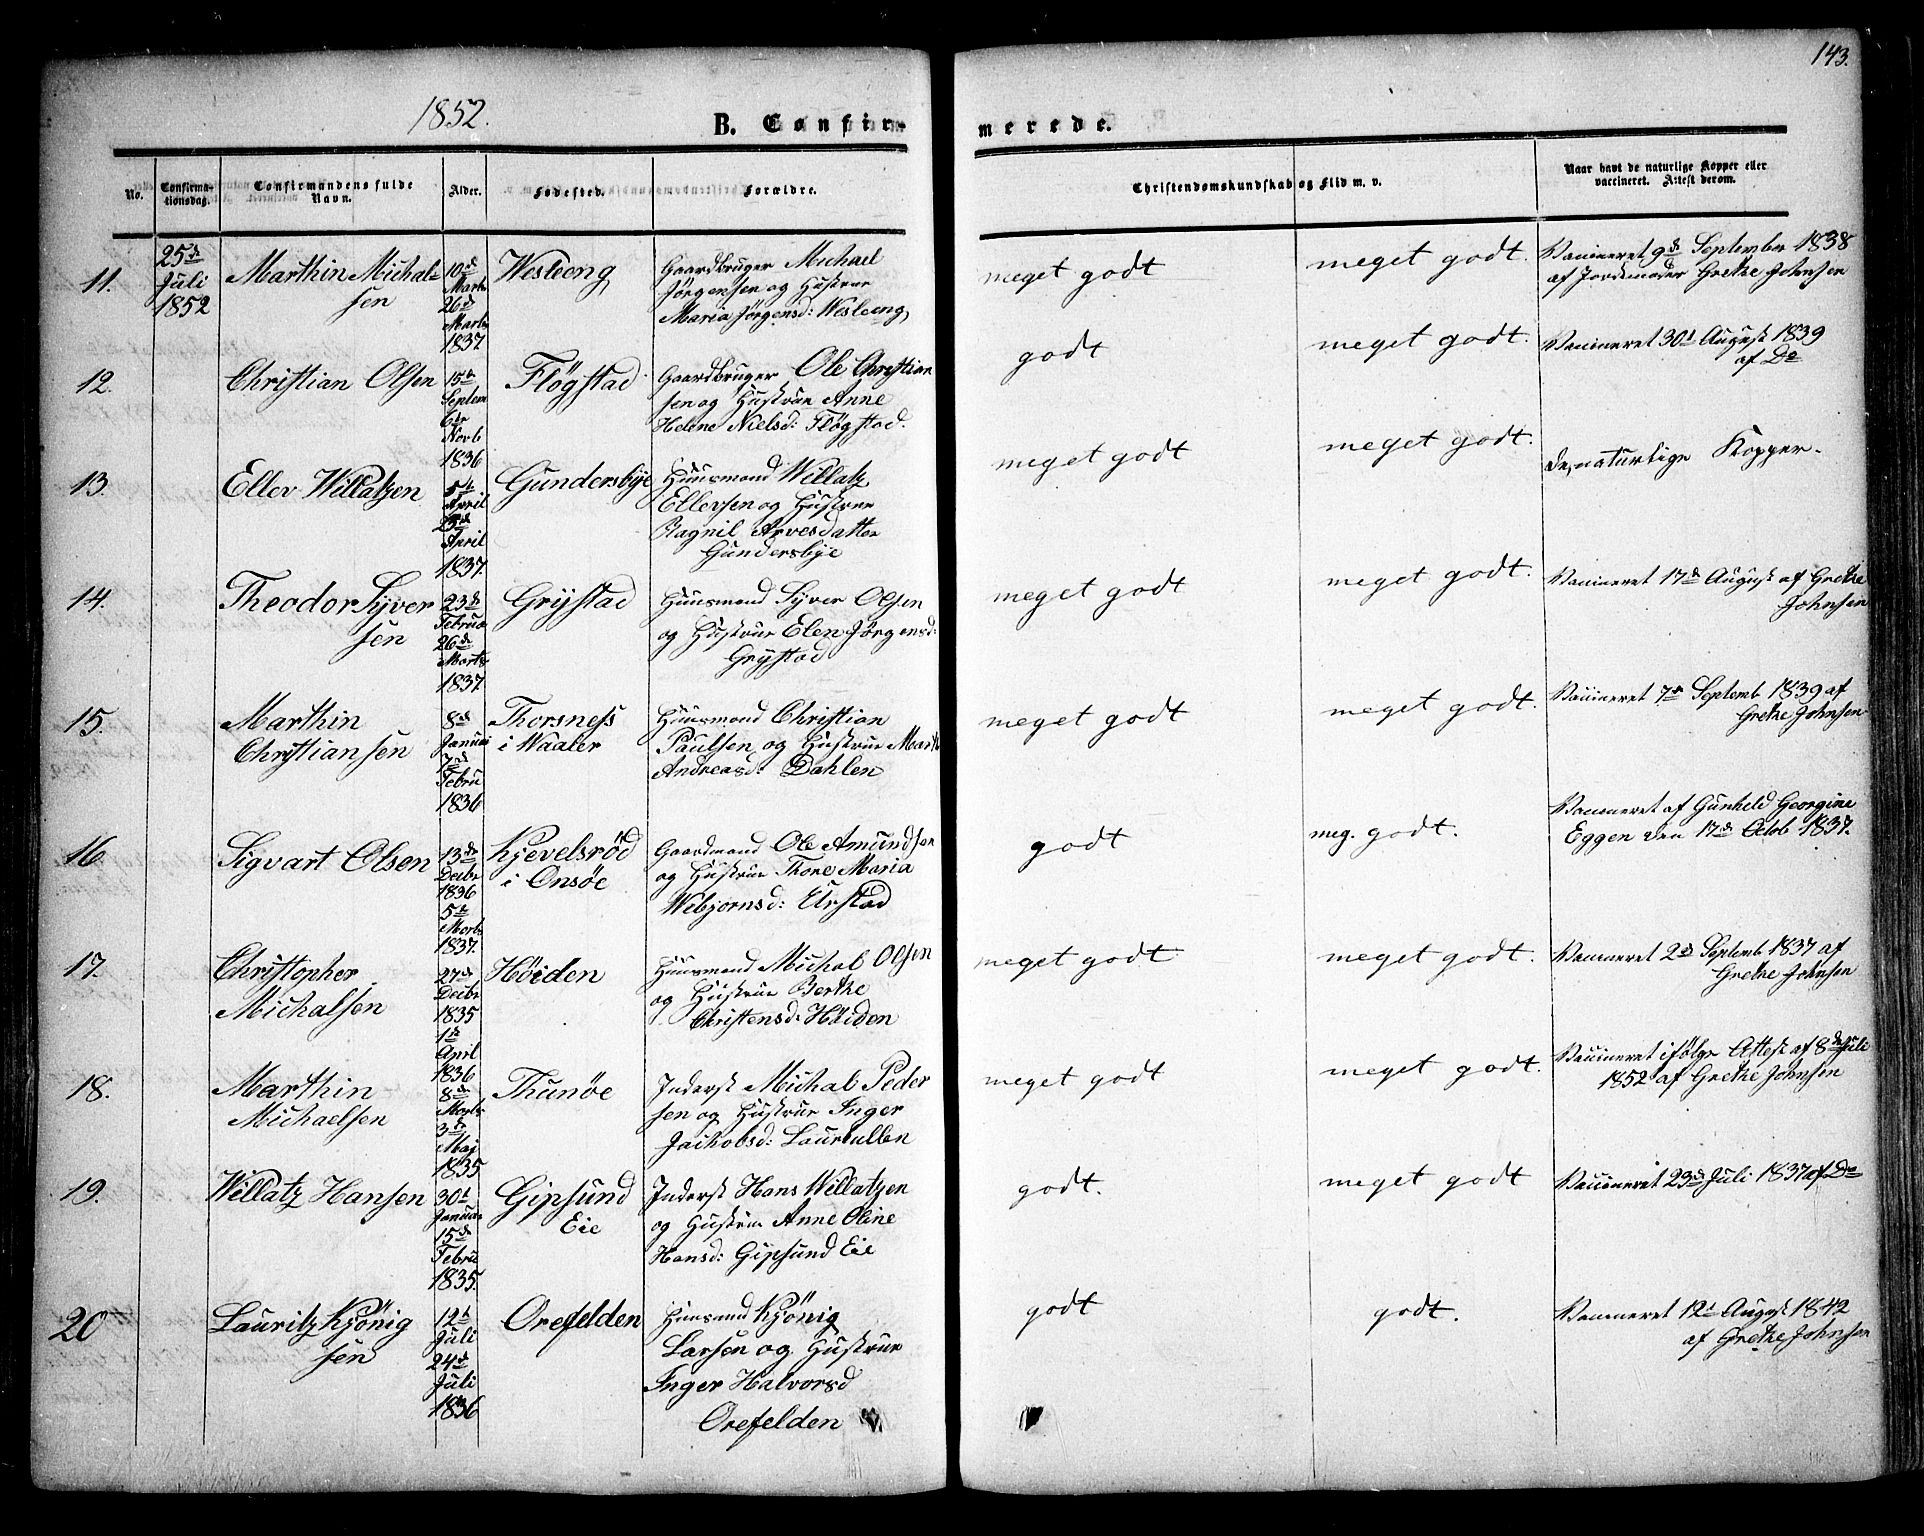 143.
1852.
B. Confirmerede.
No.
Confirmationsdag.
Confirmandens fulde Navn.
Alder.
Fødested.
Forældre.
Christendomskundskab og Flid m. v.
Naar havt de naturlige Kopper eller vaccineret. Attest derom.
11.
25de
Juli
1852
Marthin Michal-
sen
10de
Marts
26de
Marts
1837
Wesleong
Gaardbruger Michael
Jörgensen og Hustrue
Maria Jørgensd: Wesleong
meget godt
meget godt.
Vaccineret 9de September 1838
af Jordemoder Grethe Johnsen
12.
Christian Olsen
15de
Septem
6te
Novb
1836
Fløgstad
Gaardbruger Ole Christian
sen og Hustrue Anne
Helene Nielsd: Fløgstad.
godt
meget godt.
Vaccineret 30t August 1839
af Do
13.
Eller Willatzen
5te
April
23de
April
1837.
Gundersbye
Huusmand Willatz
Ellersen og Hustrue
Ragnil Arvesdatter
Gundersbye
meget godt
meget godt.
de naturlige Kopper.
14.
Theodor Syver
sen
23de
Februar
26de
Marts
1837
Grystad
Huusmand Syver Olsen
og Hustrue Elen Jørgensd:
Grystad
meget godt
meget godt.
Vaccineret 17de August af Grethe
Johnsen
15.
Marthin
Christiansen
8de
Januar
7de
Febru
1836
Thorsness
i Waaler
Huusmand Christian
Paulsen og Hustrue Marth
Andreasd: Dahlen
meget godt
meget godt.
Vaccineret 7de Septemb 1839 af
Grethe Johnsen
16.
Sigvart Olsen
13de
Decbr
1836
5te
Marts
1837.
Kjevelsrød
i Onsøe
Gaardmand Ole Amundsen
og Hustrue Thore Maria
Webjørnsd: Urstad
godt
meg. godt.
Vaccineret af Gunhild Georgine
Eggen den 17de Octob 1837.
17.
Christopher
Michalsen
27de
Decbr
1835
1te
April
1836
Höiden
Huusmand Michal Olsen
og Hustrue Berthe
Christensd: Höiden
meget godt
meget godt.
Vaccineret 2de Septemb 1837 af
Grethe Johnsen
18.
Marthin
Michaelsen
8de
Marts
3de
Maj
1835
Thunøe
Inderst Michal Peder
sen og Hustrue Inger
Jachobsd: Laurkullen
meget godt
meget godt.
Vaccineret ifølge Attest af 8de Juli
1852 af Grethe Johnsen
19.
Willatz Hansen
30t
Januar
15de
Febru
1835.
Gipsund
Eie
Inderst Hans Willatzen
og Hustrue Anne Oline
Hansd: Gipsund Eie
godt.
meget godt
Vaccineret 23de Juli 1837 af Do
20
Lauritz Kjönig
sen
12te
Juli
24de
Juli
1836
Orefelden
Huusmand Kjönig
Larsen og Hustrue
Inger Halvorsd
Orefelden
godt
godt.
Vaccineret 12t August 1842
af Grethe Johnsen